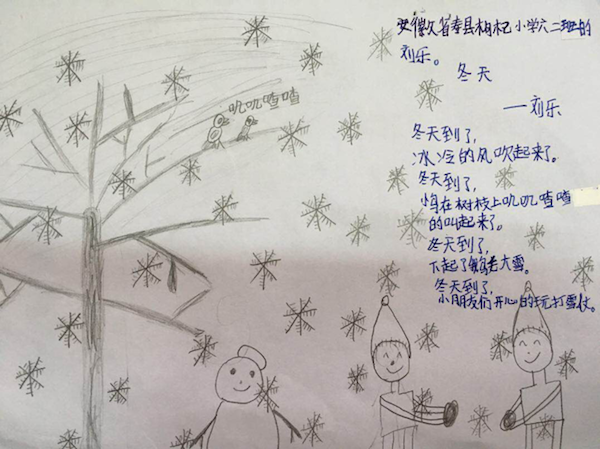 叽叽喳喳
安徽久省寿县枸杞小学六二班的
刘乐。
冬天
—刘乐
冬天到了,
冰冷的风吹起来了。
冬天到了,
小鸟在树枝上叽叽喳喳
的叫起来了。
冬天到了,
下起了鹅毛大雪。
冬天到了,
小朋友们开心的玩打雪仗。